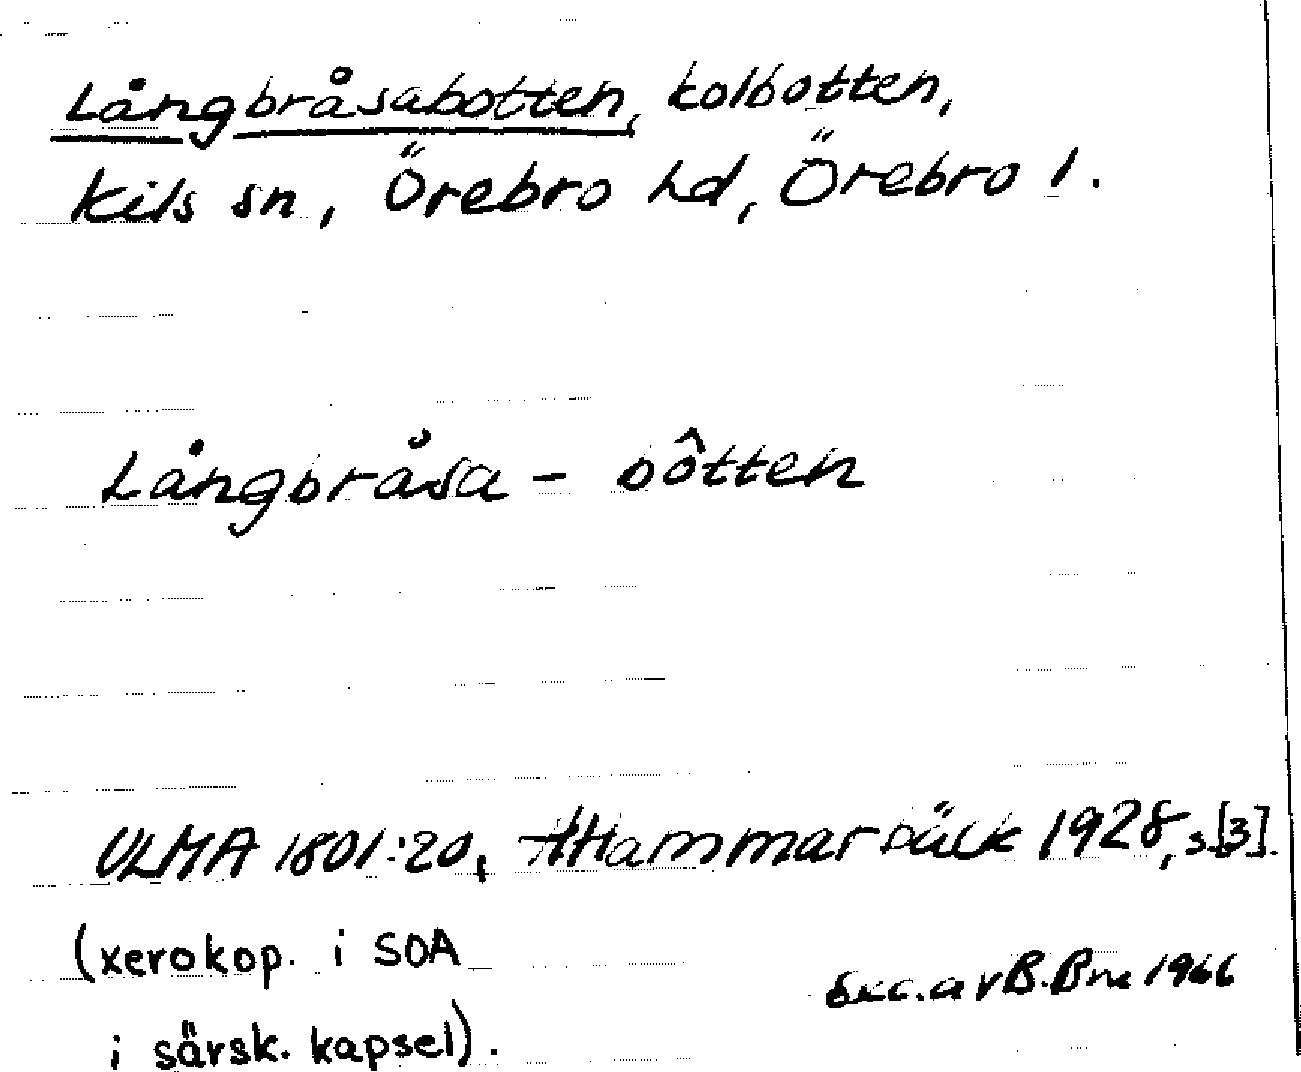 Långbråsabotten, kolbotten,
Kils sn, Örebro hd, Örebro l.
Långbråsa - bôtten
ULMA 1801:20, H Hammarbäck 1928, s.[3].
(xerokop. i SOA
i särsk. kapsel).
Exc. av B. Bm 1966